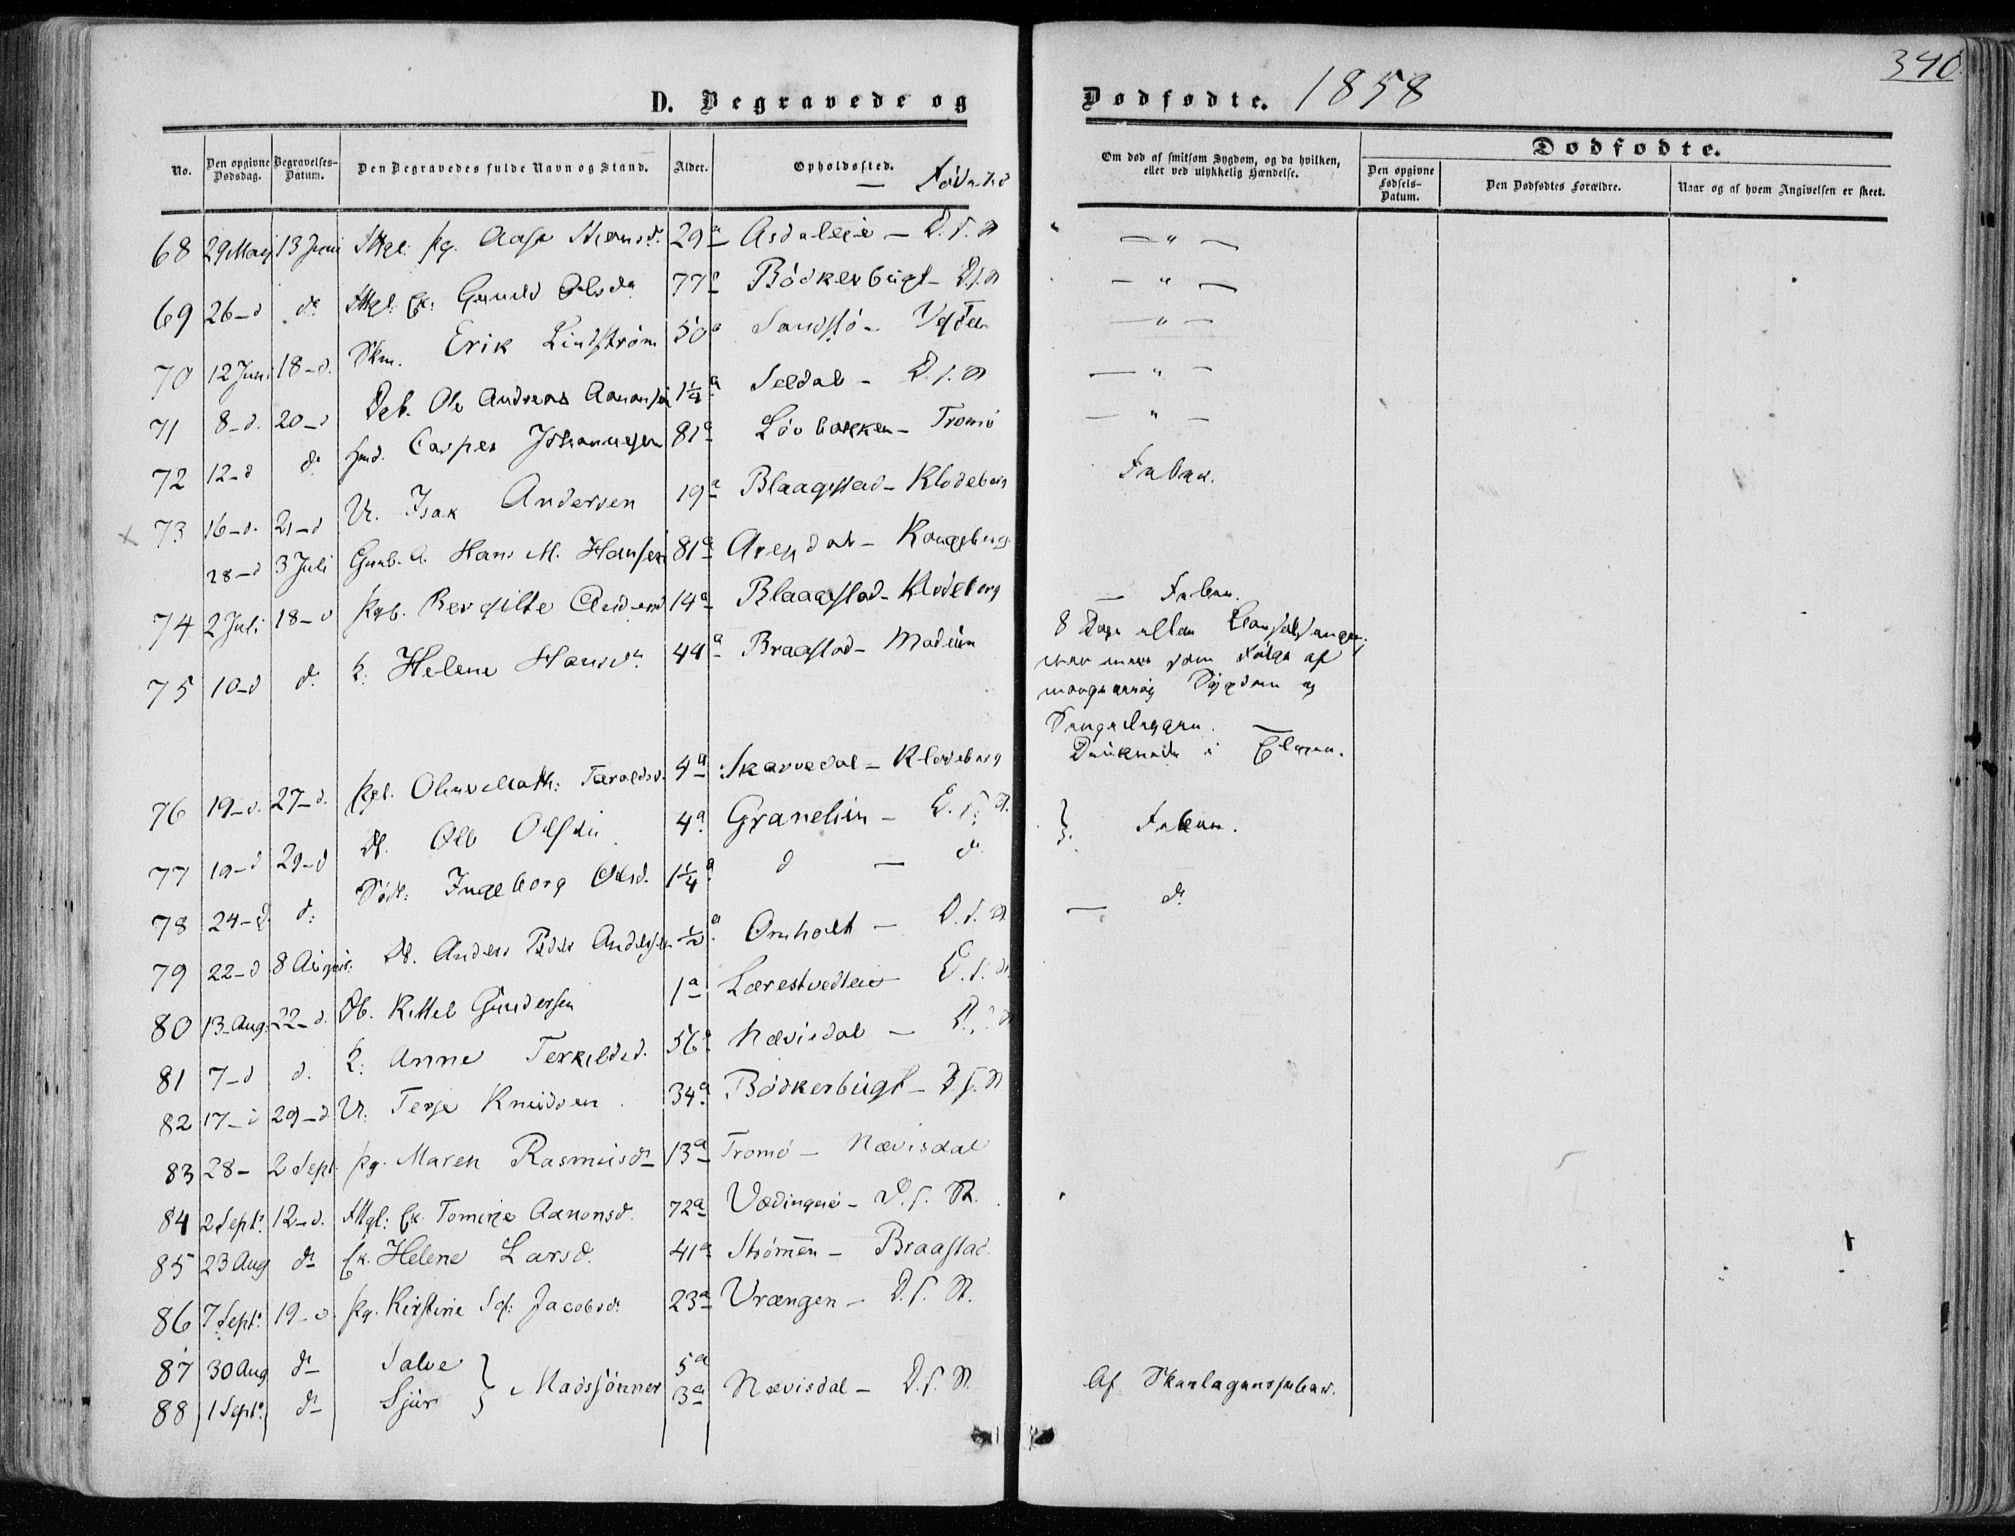 340
D. Begravede og Dødfødte. 1858
No. Den opgivne Dødsdag. Begravelses-Datum. Den Begravedes fulde Navn og Stand. Alder. Opholdssted. Om død af smitsom Sygdom, og da hvilken, eller ved ulykkelig Hændelse. Dødfødte.
Den opgivne Fødsels-Datum. Den Dødfødtes Forældre. Naar og af hvem Angivelsen er skeet.
68 29 Maj 13 Juni Pg. Aase 29 a Asdaleie - D. S. St — " —
69 26 - d d° Gunild Olsd. 77 a Bödkerbugt - D. S. St — " —
70 12 Juni 18 - d. Skm. Erik Lindstrøm 50 a Sandstö - — " —
71 8 - d. 20 - d Db. Ole Andreas Aanonsen 1¼ a Seldal - D. S. St — " —
72 12 - d d° Casper Johannesen 81 a Lövbakken - Tromö — " —
73 16 - d. 21 - d U. Isak Andersen 19 a Blaagstad - Klodeborg Feber.
28 - d 3 Juli Hans M. Hansen 81 a Arendal - Kongsberg
74 2 Juli 18 - d Pgb. Bergitte 14 a Blaagstad - Klodeborg — Feber.
75 10 - d d° K. Helene Hansd. 44 a Braastad - 8 Dage efter
som Følge af
Sygdom og
76 19 - d. 27 - d. Pgb. Taraldsd. 4 a Skarvedal - Klodeborg Druknede i Elven.
77 19 - d 29 - d Db. Ole Olsen 4 a Granelien - D. S. St. } Feber.
78 24 - d d° Ingeborg Olsd. 1¼ a d — d°
79 22 - d 8 August Db. Anders Peder Andersen ½ a Omholt - D. S. St — d°
80 13 Aug. 22 - d. Db. Kittel Gundersen 1 a Lærestvedteie D. S. St
81 7 - d d. K. Anne Terkildsd. 56 a Nævisdal — D. S. St
82 17 - d 29 - d U. Terje Knudsen 34 a Bödkerbugt - D. S. St
83 28 - 2 Sept. Pg. Maren Rasmusd. 13 a Tromö - Nævisdal
84 2 Sept. 12 - d. Ek. Tomine Aanonsd. 72 a Vædingeie - D. S. St.
85 23 Aug d° Ek. Helene Larsd. 41 a Strömmen - Braastad
86 7 Sept. 19 - d. Pg. Kirstine Jacobsd. 23 a Vrængen - D. S. St.
87 30 Aug d° Salve } Madssönner 5 a
88 1 Sept. d° Sjur 3 a Nævisdal - D. S. St. Af Skarlagensfeber.